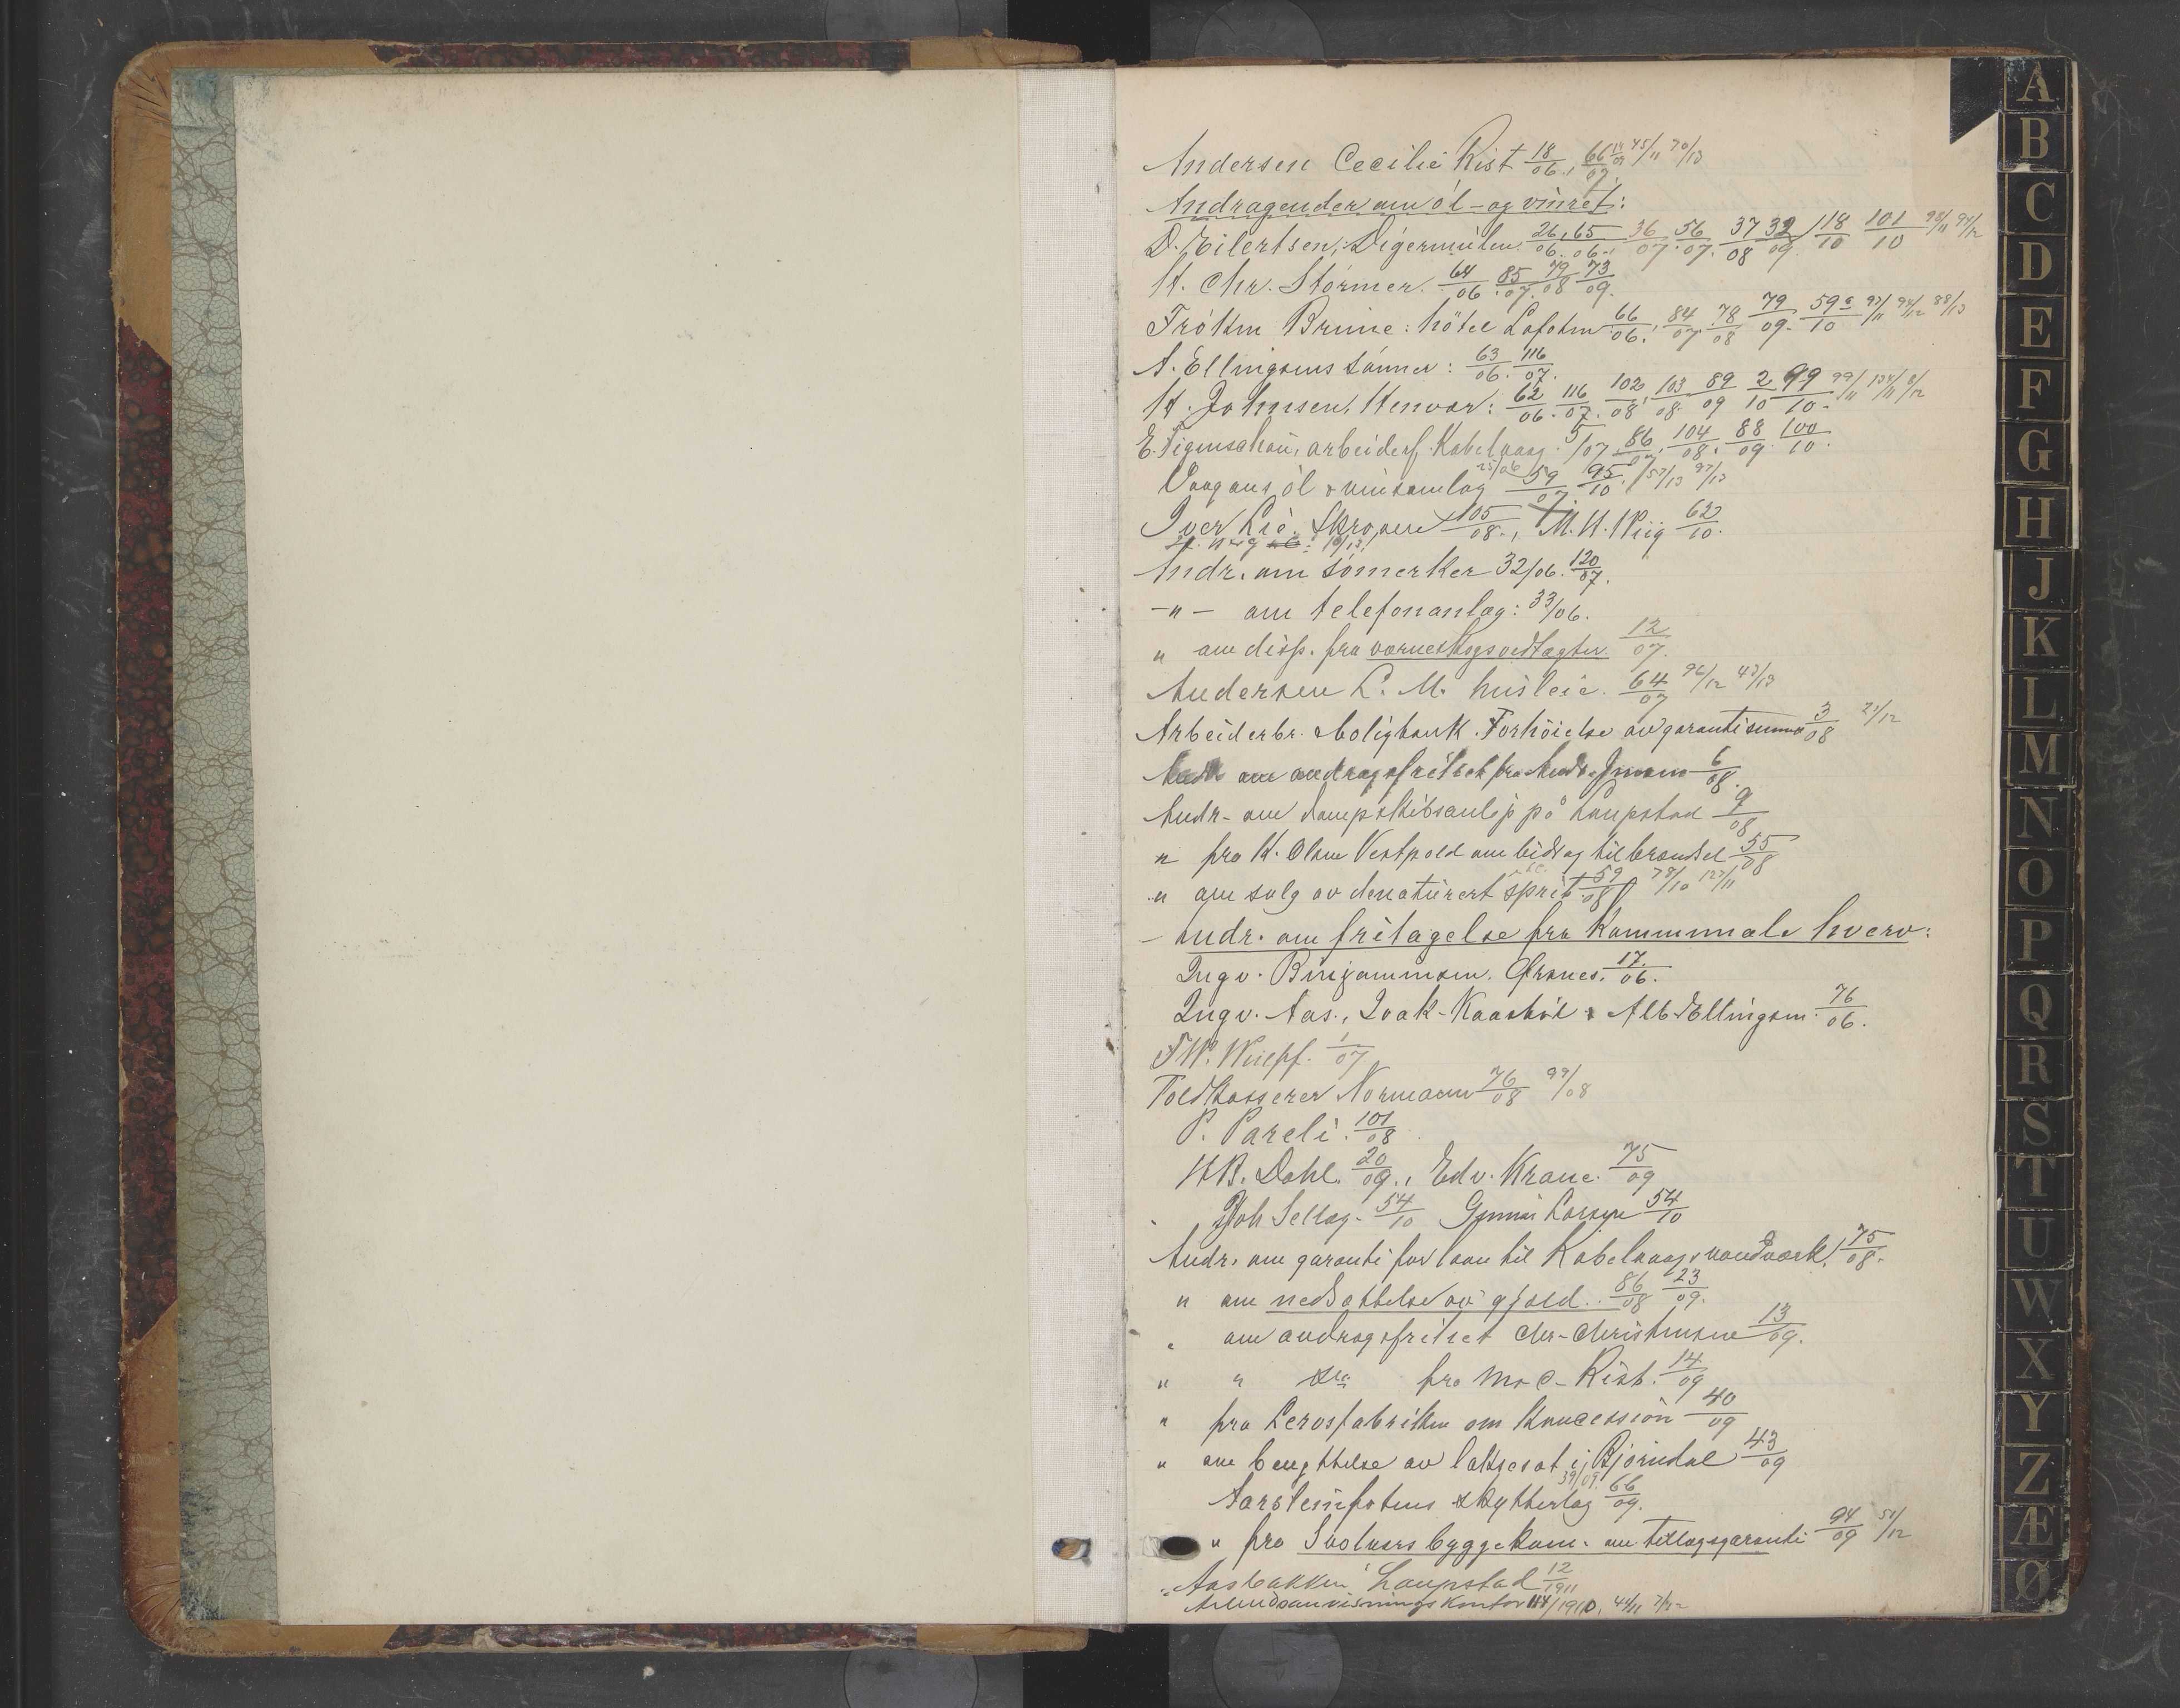 Andersen Cecilie Rist 18/06, 66/07 45/11 70/13
Andragender om öl- og vinret:
D. Eilertsen, Digermulen 26/06, 65/06, 36/07, 56/07, 37/08 32/09 118/10 101/10 98/11 94/12
H. Chr. Störmer. 64/06, 85/07, 79/08 73/09.
Fröken Brune: hötel Lofoten 66/06, 84/07 78/08 79/09. 59/10 97/11 94/12 88/13
A. Ellingsens Sönner: 63/06. 116/07.
H. Johnsen, Henvær: 62/06. 116/07. 102/08, 103/08. 89/09 2/10 99/10. 99/11 134/11 8/12
E. Figenschau, arbeiderf. Kabelvaag. 5/07, 86/07, 104/08. 88/09 100/10.
Vaagans öl & vinsamlag 25/06 59/07. 95/10. 57/13 97/13
Iver Lie, Skroven 105/08., M. H. Wiig 62/10.
Andr. om sömerker 32/06. 120/07.
-"- om telefonanlæg: 33/06.
" om disp. fra værneskogsvedtægter 12/07.
Andersen L. M. husleie. 64/07 96/12 43/13
Arbeiderbr. & boligbank. Forhöielse av garantisumma 3/08 21/12
Andr. om opdragsfrihet fra 6/08.
Andr. om dampskibsanlöp på Laupstad 9/08
" fra K. Olsen Vestpold om bidrag til brændsel 55/08
" om salg av denaturert sprit 59/08 78/10 127/11
- Andr. om fritagelse fra kommunale hverv:
Ingv. Binjaminsen. Örsnes. 17/06.
Ingv. Aas., Joak. Kaarböl & Alb. Ellingsen. 76/06.
F. W. 1/07
Toldkasserer Normann 76/08 99/08
P. Pareli. 101/08
H B. Dahl. 20/09., Edv. Krane. 75/09
Joh Sellæg. 54/10 Gunnar Larsen 54/10
Andr. om garanti for laan til Kabelvaags vandværk. 75/08.
" om nedsættelse av gjæld.. 86/08 23/09.
" om andragsfrihet Chr. Christensen 13/09.
" " do fra M. C. Rist. 14/09
" fra Lerosfabrikken om koncession 40/09
" om benyttelse av laksesat i Björndal 43/09
39/09.
Aarsteinfotens skytterlag 66/09.
" fra Svolvær byggekom. om tillægsgaranti 94/09 51/12
" Aasbakken Laupstad 12/1911
Arbeidsanvisningskontor 114/1910, 44/11 7/12